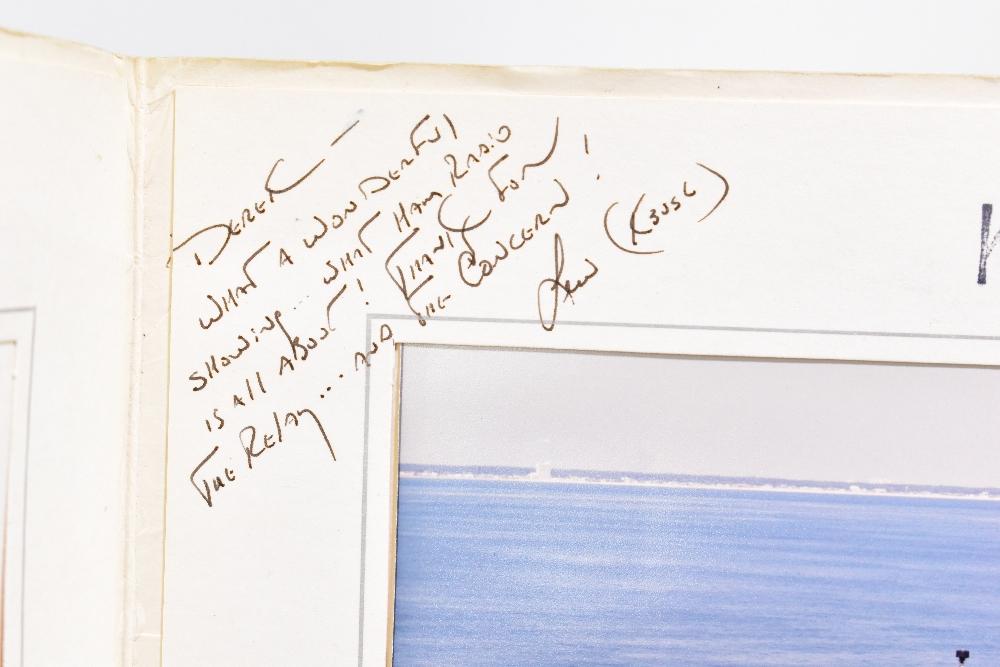 DEREK —
WHAT A WONDERFUL
SHOWING... WHAT HAM RADIO
IS All ABOUT! THANK FOR
THE RELAY... AND THE CONCERN!
Lew (K3USG)